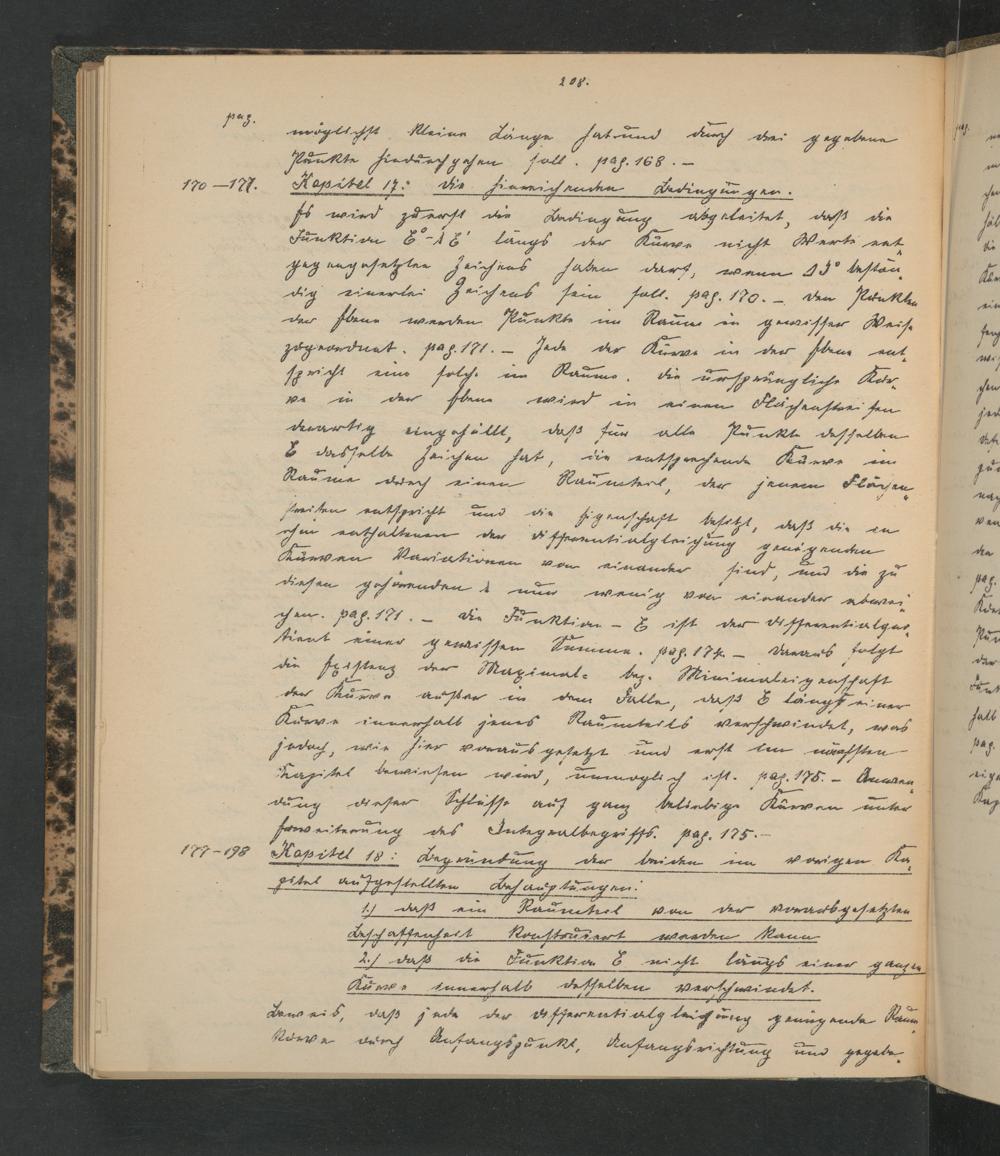 208.
pag.
möglichst kleine Länge hat und durch drei gegebene
Punkte hindurchgehen soll. pag. 168. –
170–177. Kapitel 17: die hinreichenden Bedingungen.
Es wird zuerst die Bedingung abgeleitet, daß die
Funktion längs der Kurve nicht Werte ent-
gegengesetzten Zeichens haben darf, wenn bestän-
dig einerlei Zeichens sein soll. pag. 170. – Den Punkten
der Ebene werden Punkte im Raume in gewisser Weise
zugeordnet. pag. 171. – Jede der Kurve in der Ebene ent-
spricht eine solche im Raume. Die ursprüngliche Kur-
ve in der Ebene wird in einen Flächenstreifen
derartig eingehüllt, daß für alle Punkte desselben
E dasselbe Zeichen hat, die entsprechende Kurve im
Raume durch einen Raumteil, der jenem Flächen-
streifen entspricht und die Eigenschaft besitzt, daß die in
ihm enthaltenen der Differentialgleichung genügenden
Kurven Variationen von einander sind, und die zu
diesen gehörenden λ nur wenig von einander abwei-
chen. pag. 171. – Die Funktion – E ist der Differentialquo-
tient einer gewissen Summe. pag. 174. – Daraus folgt
die Existenz der Maximal- bez. Minimaleigenschaft
der Kurve außer in dem Falle, daß E längs einer
Kurve innerhalb jenes Raumteils verschwindet, was
jedoch, wie hier vorausgesetzt und erst im nächsten
Kapitel bewiesen wird, unmöglich ist. pag. 175. – Anwen-
dung dieser Schlüsse auf ganz beliebige Kurven unter
Erweiterung des Integralbegriffs. pag. 175. –
177–198 Kapitel 18: Begründung der beiden im vorigen Ka-
pitel aufgestellten Behauptungen:
1.) daß ein Raumteil von der vorausgesetzten
Beschaffenheit konstruiert werden kann
2.) daß die Funktion E nicht längs einer ganzen
Kurve innerhalb desselben verschwindet.
Beweis, daß jede der Differentialgleichung genügende Raum-
kurve durch Anfangspunkt, Anfangsrichtung und gegebe-